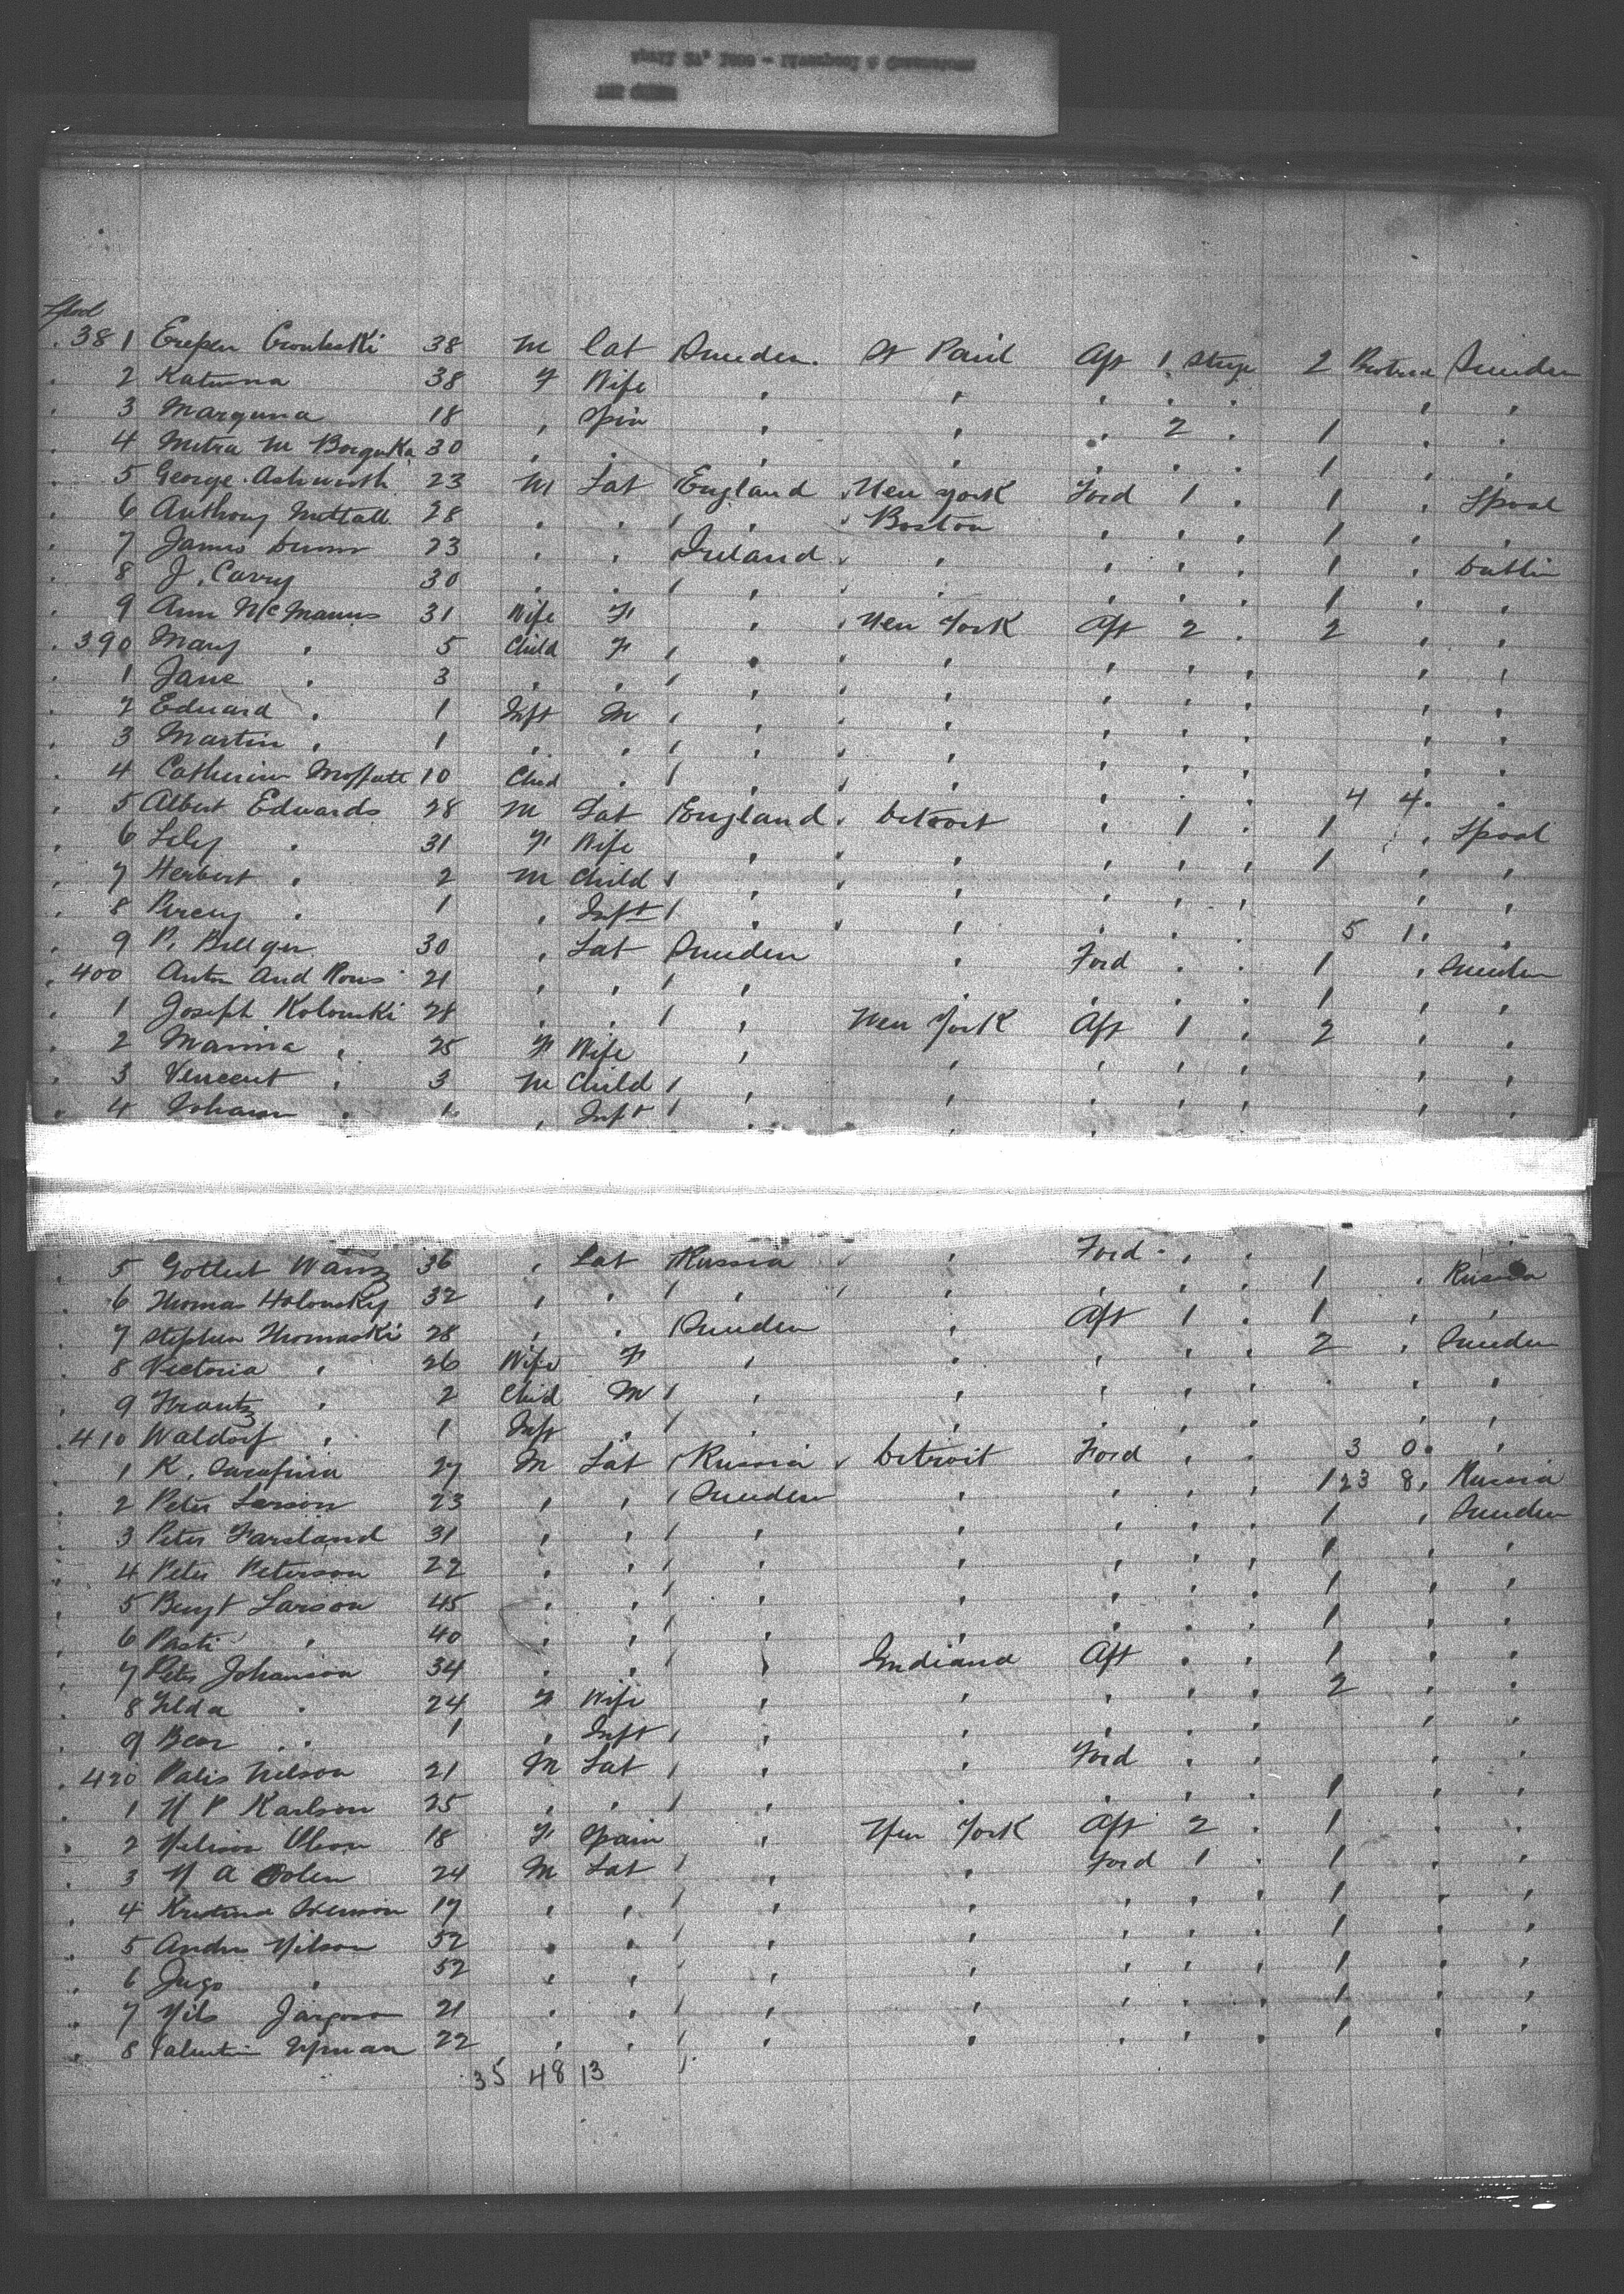 Lpool
381 Erepen Cronleski 38 M Lat Sweden St Paul Aft 1 Stege 2 Protrac Sweden
2 Katurna 38 F Wife
3 Marguna 18 , Spin , , , 2 . 1
4 Metra M Borguka 30 1
5 George Ashworth 23 M Lat England New York Ford 1 . 1 , Lpool
6 Anthony Nuttall 28 , , , Boston , , , 1
7 James Dunn 23 , , Ireland , , , , 1 , Dublin
8 J. Carry 30 1
9 Ann McManus 31 Wife F , New York Aft 2 . 2
390 Mary , 5 Child F
1 Jane , 3
2 Edward , 1 Inft M
3 Martin , 1
4 Catherine Moffatt 10 Chid 4 4
5 Albert Edwards 28 M Lat England Detroit , 1 . 1 , Lpool
6 Lily , 31 F Wife 1
7 Herbert , 2 M Child
8 Percy , 1 , Inft 5 1
9 P. Billgen 30 , Lat Sweden , Ford . . 1 , Sweden
400 Anton And Rous 21 1
1 Joseph Kolouski 28 New York Aft 1 , 2
2 Marina , 25 F Wife
3 Vincent , 3 M Child
4 Johann , 1 , Inft
5 Gottleit Wanz 36 , Lat Russia , Ford 1 , Russia
6 Thomas Holousky 32 1
7 Stephen Thomaski 28 , , Sweden , Aft 1 . 2 , Sweden
8 Victoria , 26 Wife F
9 Frantz , 2 Chid M
410 Waldorf , 1 Inft 3 0
1 K. Sarafina 27 M Lat Russia Detroit Ford , , 1 23 8 Russia
2 Peter Larson 23 , , Sweden 1 , Sweden
3 Peter Farsland 31 1
4 Peter Peterson 22 1
5 Bengt Larson 45 1
6 Pasti , 40 1
7 Peter Johanson 34 Indiana Aft . . 2
8 Hilda , 24 F Wife
9 Bear , 1 , Inft
420 Palis Nelson 21 M Lat , , , Ford
1 N P Karlson 25 1
2 Nelson Olson 18 F Spain , New York Aft 2 . 1
3 N A Bolen 24 M Lat , , , Ford 1 . 1
4 Kristina Swenson 19 1
5 Andrs Nilson 52 1
6 Jugo , 52 1
7 Nils Jargoson 21 1
8 Valentin Nyman 22 1
35 48 13